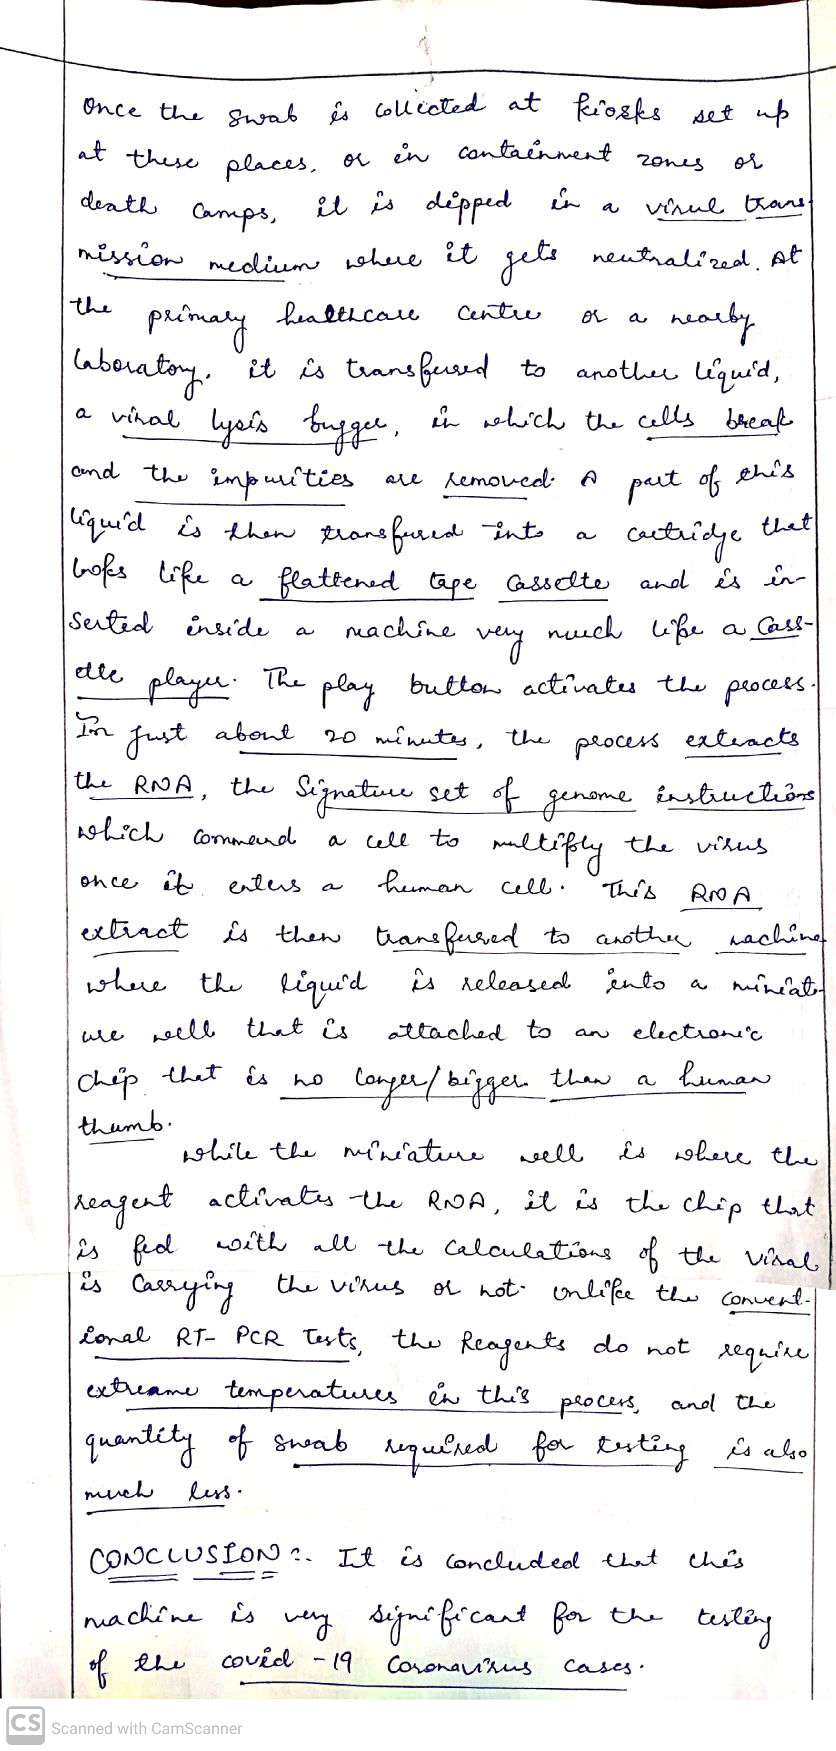 Once the swab is collected at kiosks set up
at these places, or in containment zones or
death camps, it is dipped in a virul trans-
mission medium where it gets neutralized. At
the primary healthcare centre or a nearby
laboratory. it is transfused to another liquid,
a viral lysis bugger, in which the cells break
and the impurities are removed. A part of this
liquid is then transfured into a cartridge that
looks like a flattened tape cassette and is in-
serted inside a machine very much like a cass-
ette player. The play button activates the process.
In just about 20 minutes, the process extracts
the RNA, the Signature set of genome instructions
which command a cell to multiply the virus
once it enters a human cell. This RNA
extract is then transferred to another machine
where the liquid is released into a miniat-
ure well that is attached to an electronic
chip that is no longer/bigger than a human
thumb.
while the miniature well is where the
reagent activates the RNA, it is the chip that
is fed with all the calculations of the viral
is carrying the virus or not. unlike the convent-
ional RT- PCR Tests, the Reagents do not require
extreame temperatures in this process, and the
quantity of swab required for testing is also
much less.
CONCLUSION :- It is concluded that this
machine is very significant for the testing
of the covid -19 coronavirus cases.
CS Scanned with CamScanner